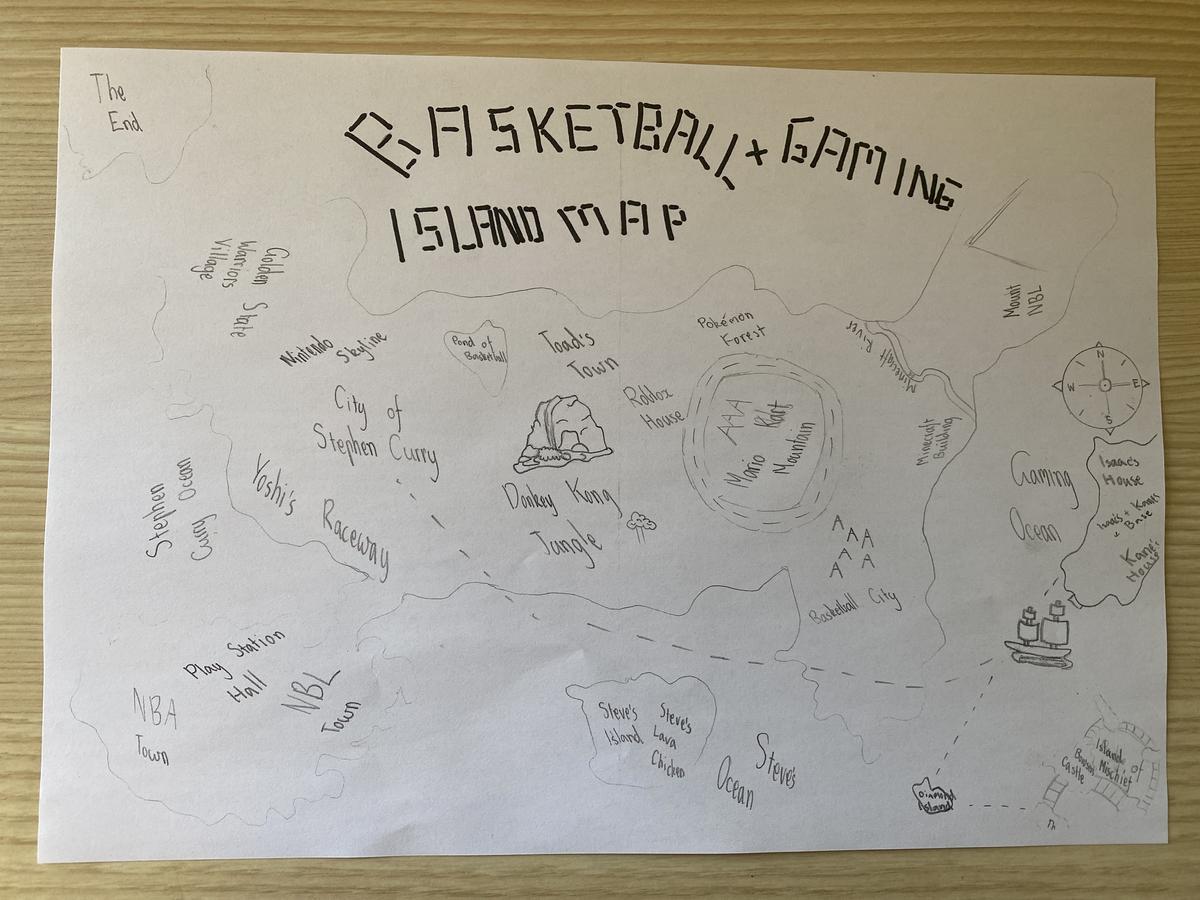 The
End
BASKETBALL + GAMING
ISLAND MAP
Golden State
Warriors
Village
Nintendo
Skyline
Pond of
Basketball
Toad's
Town
Pokémon
Forest
Minecraft River
Mount
NBL
N
W
E
S
City of
Stephen Curry
Roblox
House
AAA
Mario Kart
Mountain
Minecraft
Building
Gaming
Ocean
Isaac's
House
Isaac's + Kane's
Base
Kane's
House
Stephen
Curry Ocean
Yoshi's
Raceway
Donkey Kong
Jungle
A
A A
A A
A
Basketball City
Play Station
Hall
NBA
Town
NBL
Town
Steve's
Island
Steve's
Lava
Chicken
Steve's
Ocean
Diamond
Island
Island of
Mischief
Castle